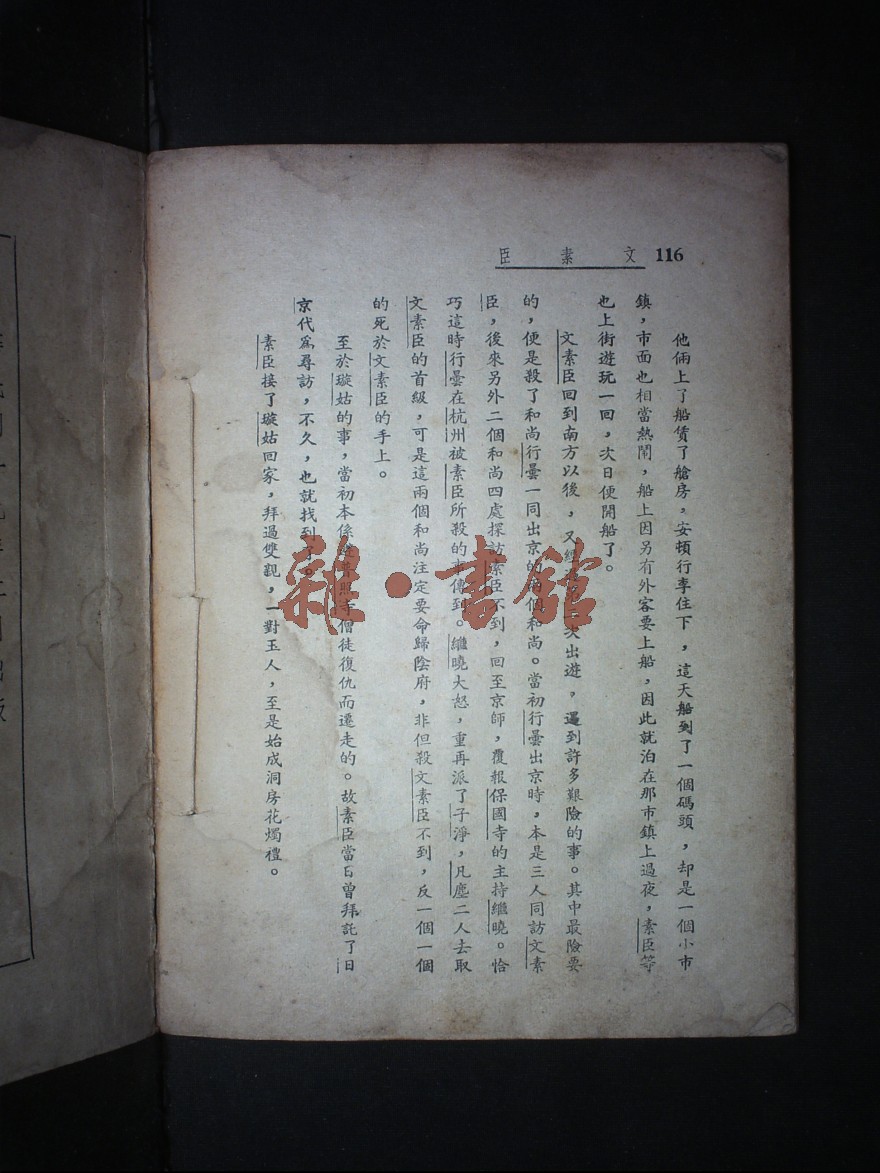 116
文素臣
他倆上了船賃了艙房，安頓行李住下，這天船到了一個碼頭，却是一個小市
鎮，市面也相當熱鬧，船上因另有外客要上船，因此就泊在那市鎮上過夜，素臣等
也上街遊玩一回，次日便開船了。
文素臣回到南方以後，又經次出遊，遇到許多艱險的事。其中最險要
的，便是殺了和尚行曇一同出京的兩個和尚。當初行曇出京時，本是三人同訪文素
臣，後來另外二個和尚四處探訪素臣不到，回至京師，覆報保國寺的主持繼曉。恰
巧這時行曇在杭州被素臣所殺的事傳到。繼曉大怒，重再派了子淨，凡塵二人去取
文素臣的首級，可是這兩個和尚注定要命歸陰府，非但殺文素臣不到，反一個一個
的死於文素臣的手上。
至於璇姑的事，當初本係僧徒復仇而遷走的。故素臣當日曾拜託了日
京代爲尋訪，不久，也就找到了。
素臣接了璇姑回家，拜過雙親，一對玉人，至是始成洞房花燭禮。
雜·書館